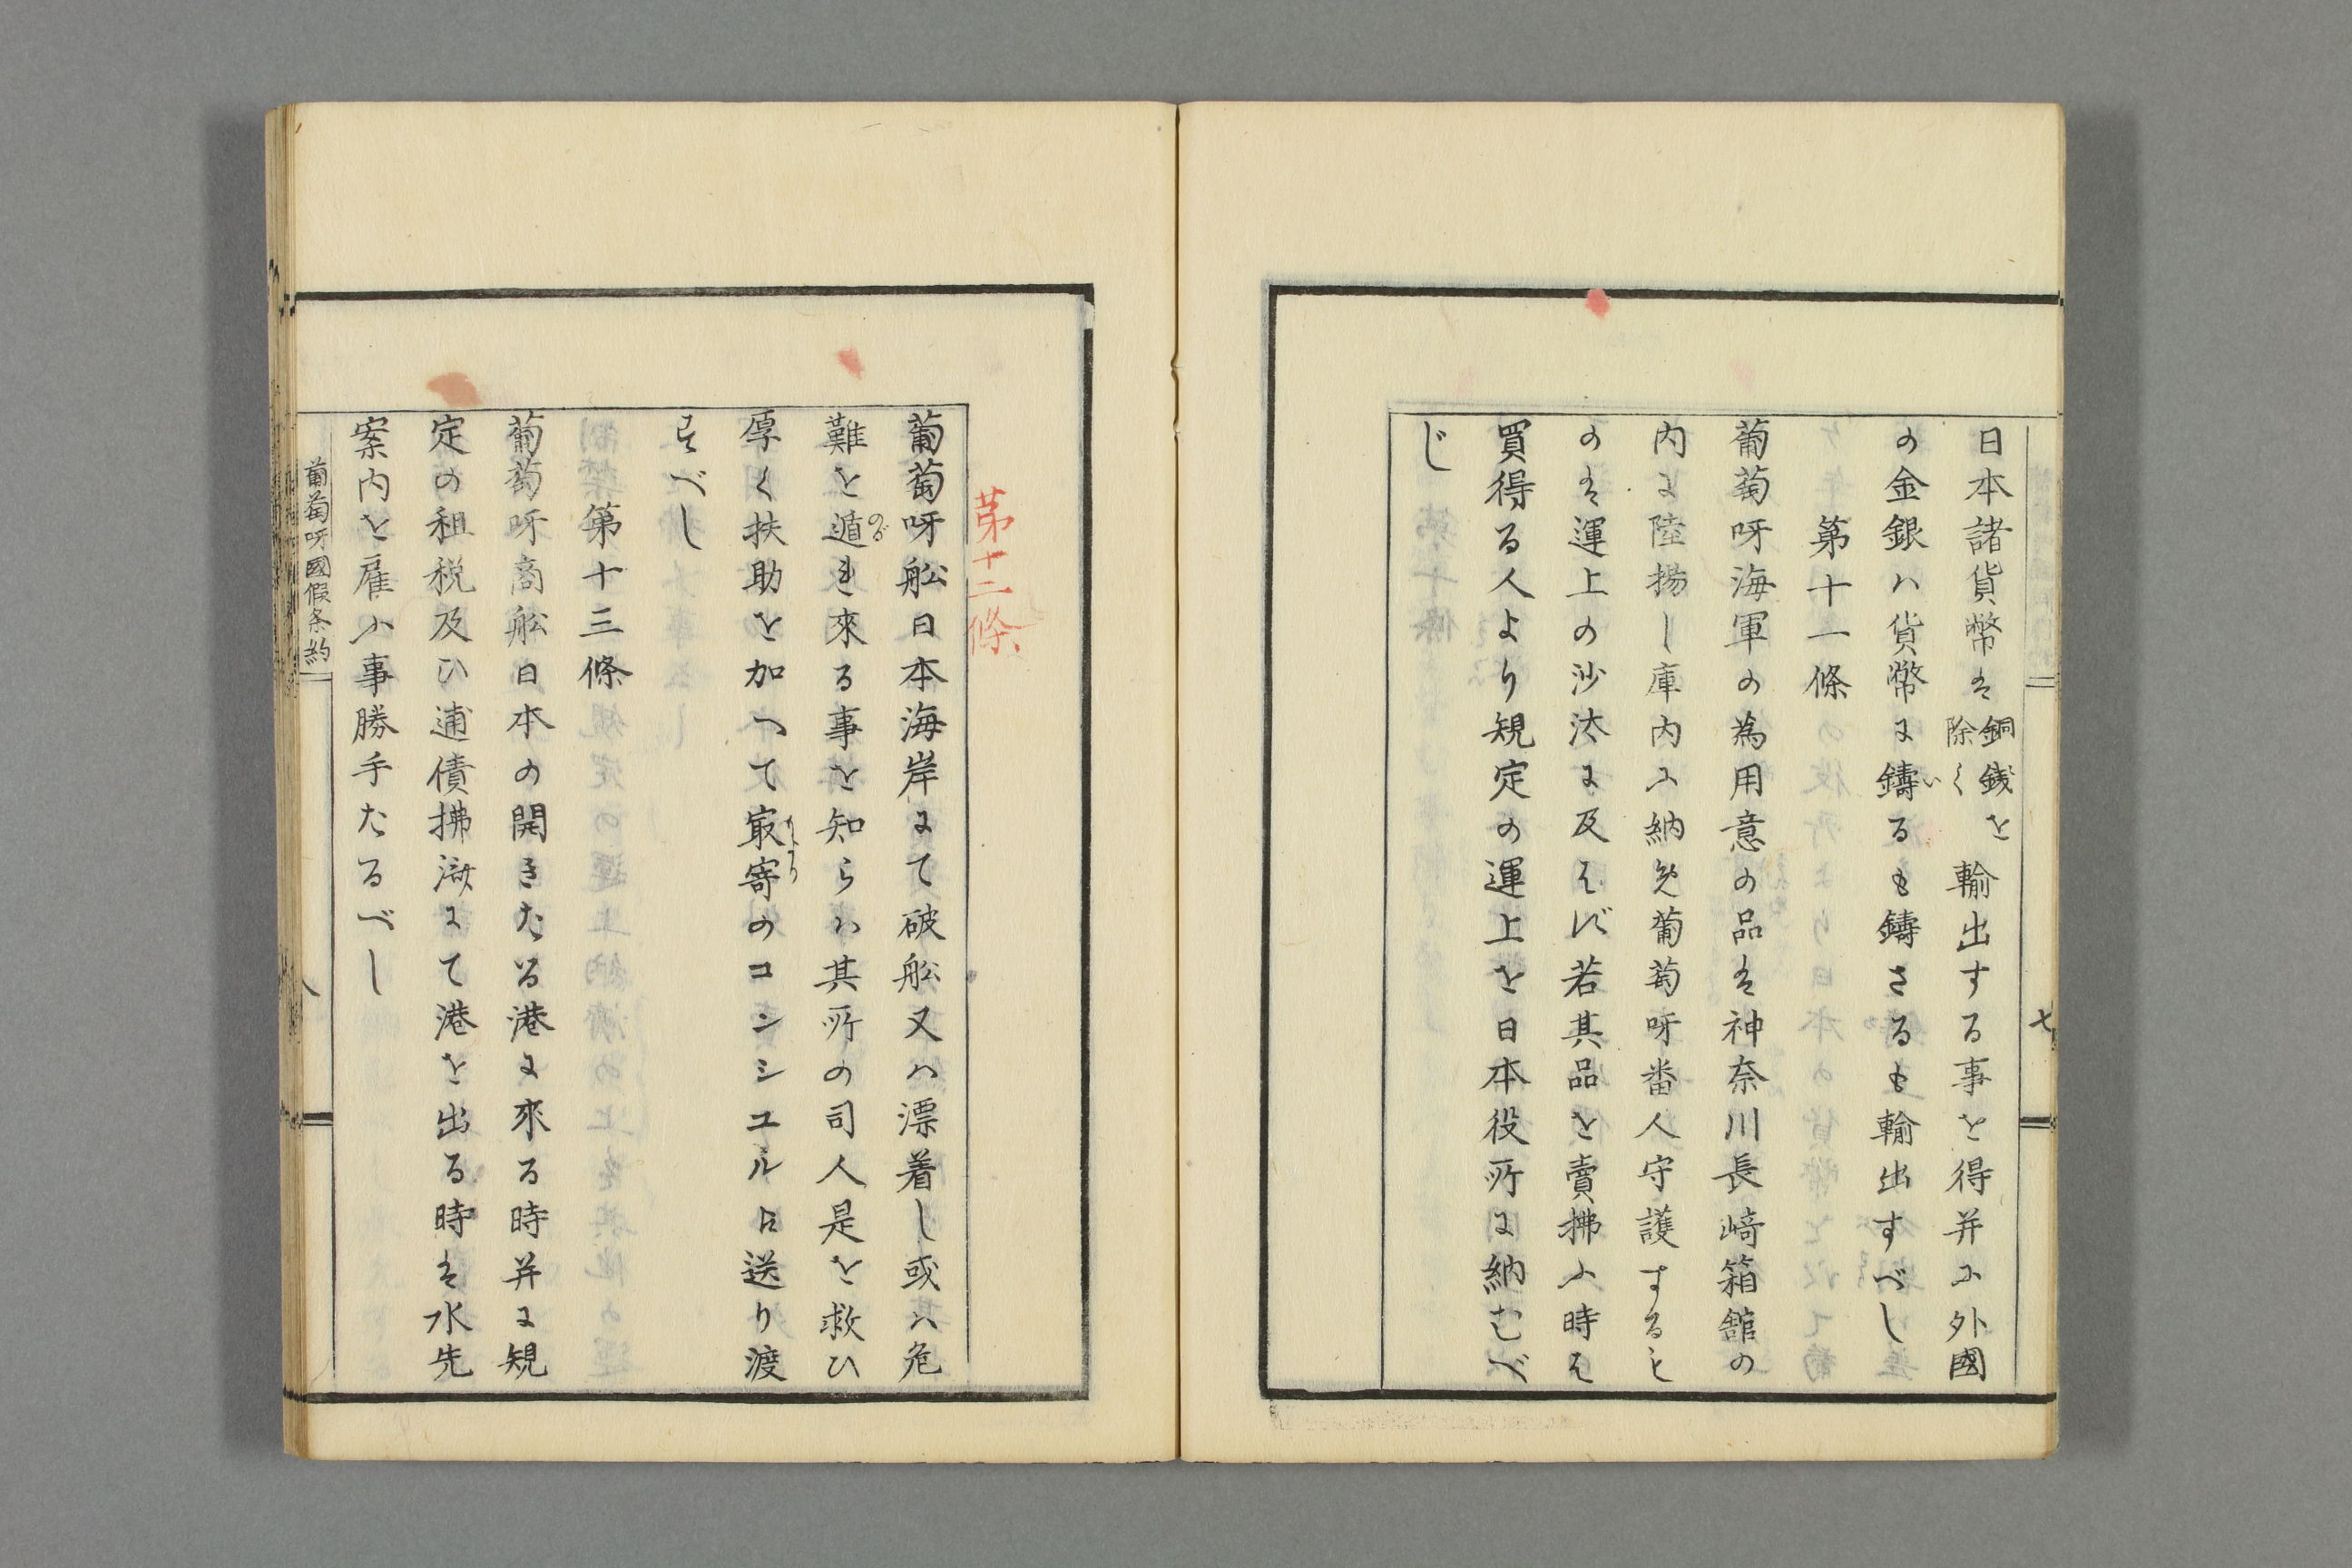 日本諸貨幣は銅銭を除く輸出する事を得并に外國
の金銀ハ貨幣に鑄るも鑄さるも輸出すべし
い
第十一條
葡萄呀海軍の為用意の品は神奈川長﨑箱舘の
内に陸揚し庫内に納め葡萄呀番人守護するも
のは運上の沙汰に及はず若其品を賣拂ふ時は
買得る人より規定の運上を日本役所に納むべ
し゛
七
第十二條
葡萄呀舩日本海岸にて破舩又ハ漂着し或ハ危
難を遁れ來る事を知らハ其所の司人是を救ひ
のが
厚く扶助を加へて㝡寄のコンシユルに送り渡
もより
すべし
第十三條
葡萄呀商舩日本の開きたる港に來る時并に規
定の租税及ひ逋債拂濟にて港を出る時は水先
案内を雇ふ事勝手たるべし
葡萄呀國假条約
八